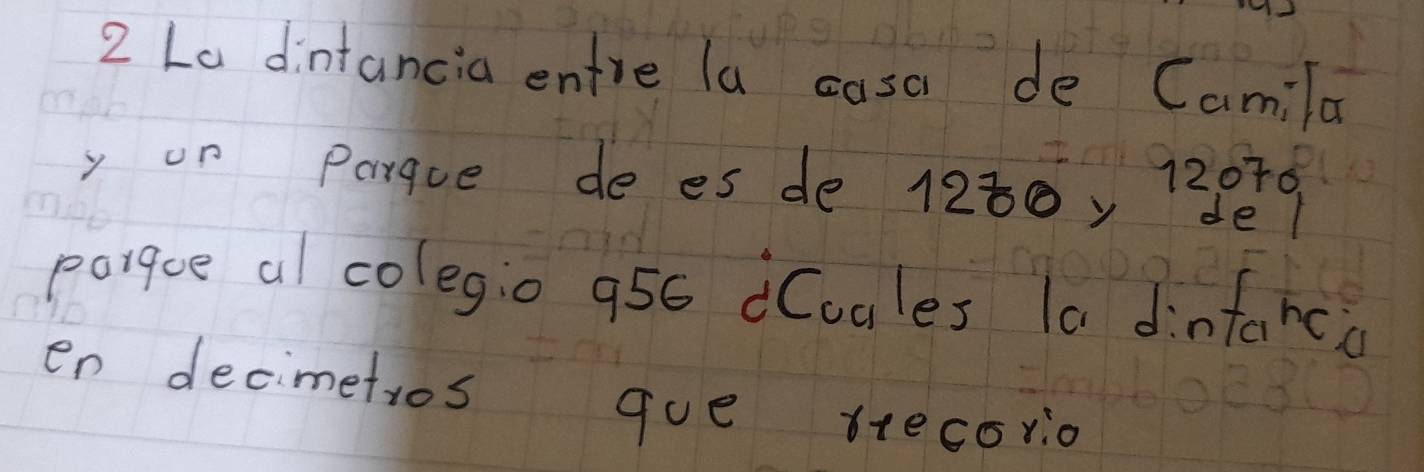 2 La dintancia entre la casa de Camila
y un Parque de es de 1270, y 12070
del
parque al colegio 956 ¿Cuales la dintancia
en decimetros que rrecorio